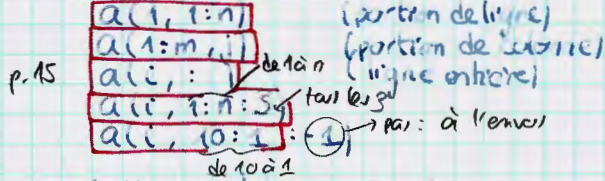 a(1, 1:n) (portion de ligne)
a(1:m, j) (portion de colonne)
p.15 a(i, : ) de 1 à n (ligne entière)
a(i, 1:n:3) tous les 3
a(i, 10:1:-1) → pas: à l'envers
de 10 à 1